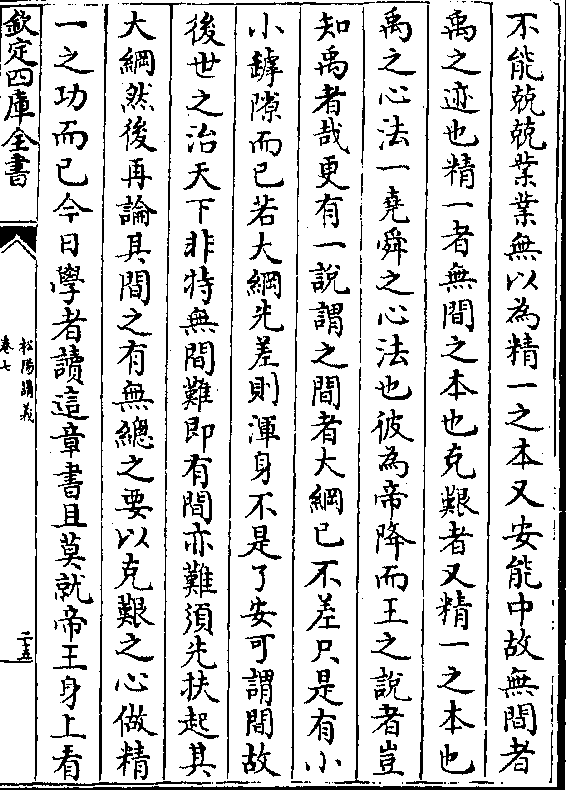 不能兢兢業業無以為精一之本又安能中故無間者
禹之迹也精一者無間之本也克艱者又精一之本也
禹之心法一堯舜之心法也彼為帝降而王之說者豈
知禹者哉更有一說謂之間者大綱已不差只是有小
小罅隙而已若大綱先差則渾身不是了安可謂間故
後世之治天下非特無間難即有間亦難須先扶起其
大綱然後再論其間之有無總之要以克艱之心做精
一之功而已今日學者讀這章書且莫就帝王身上看
欽定四庫全書
松陽講義
卷七
二十五